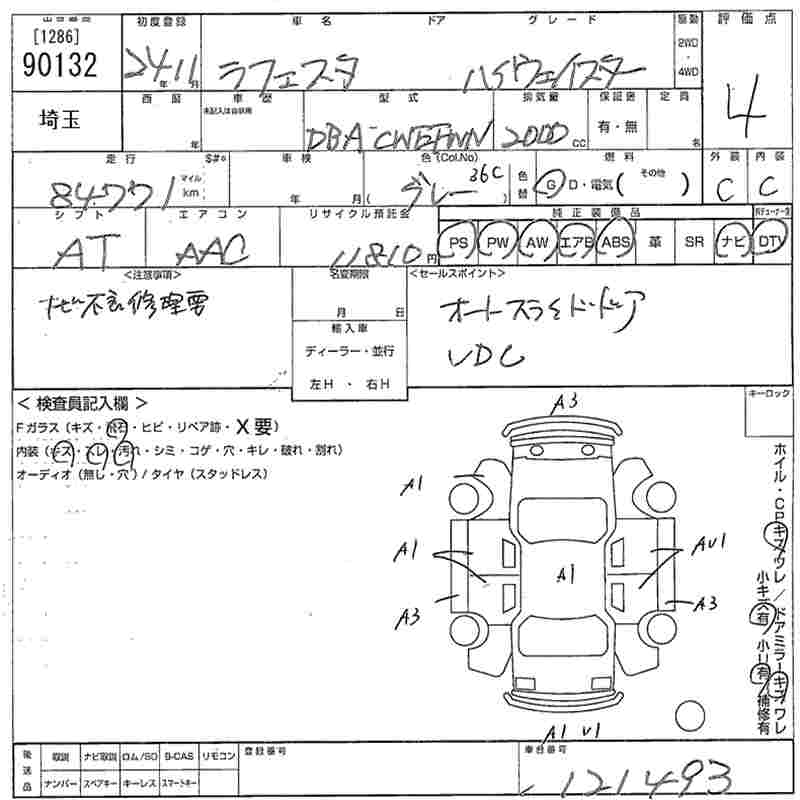 出品番号 初度登録 車名 ドア グレード 駆動 評価点
[1286] 90132 24年11月 ラフェスタ ハイウェイスター 2WD・4WD 4
埼玉 西暦 年 車歴 未記入は自家用 型式 排気量 保証書 定員
DBA-CWEFWN 2000cc 有・無 名
走行 S#® 車検 色(Col.No) 色替 燃料 外装 内装
84771 マイル km 年 月( グレー 36C ) G D・電気( その他 ) C C
シフト エアコン リサイクル預託金 純正装備品
AT AAC 11810円 PS PW AW エアB ABS 革 SR ナビ DTV
<注意事項> 名変期限 <セールスポイント>
ナビ不良修理要 月 日 オートスライドドア
輸入車 VDC
ディーラー・並行
左H・右H
<検査員記入欄> キーロック
Fガラス(キズ・飛石・ヒビ・リペア跡・X要)
内装(キズ・スレ・汚れ・シミ・コゲ・穴・キレ・破れ・割れ)
オーディオ(無し・穴)/タイヤ(スタッドレス)
A3
A1
A1 A1 AU1
A3 A3
A1 U1
ホイル・CPキズワレ/ドアミラーキズワレ
小キズ有/小U有/補修有
後送品 取説 ナビ取説 ロム/SD B-CAS リモコン 登録番号 車台番号
ナンバー スペアキー キーレス スマートキー 121493